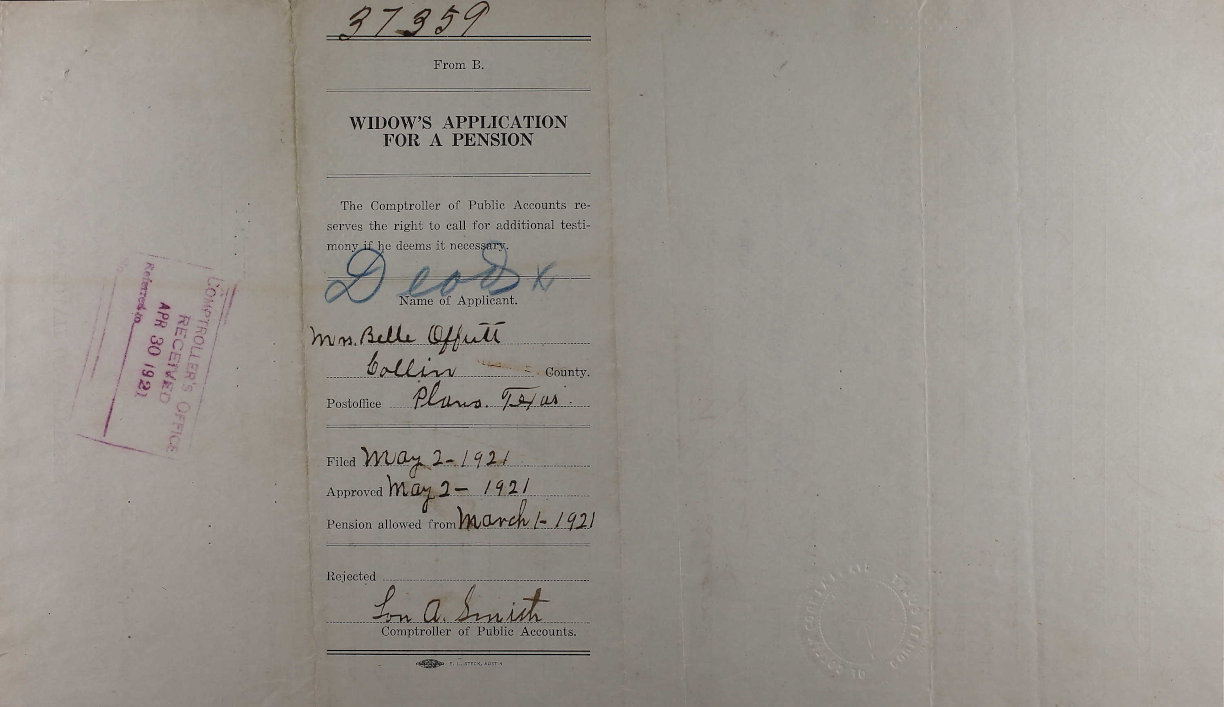 37359
From B.
WIDOW'S APPLICATION
FOR A PENSION
The Comptroller of Public Accounts re-
serves the right to call for additional testi-
mony if he deems it necessary.
Dead x
Name of Applicant.
Mrs. Belle Offutt
Collin County.
Postoffice Plano. Texas.
Filed May 2-1921
Approved May 2- 1921
Pension allowed from March 1- 1921
Rejected
Lon A. Smith
Comptroller of Public Accounts.
E. L. STECK, AUSTIN
COMPTROLLER'S OFFICE
RECEIVED
APR 30 1921
Referred to